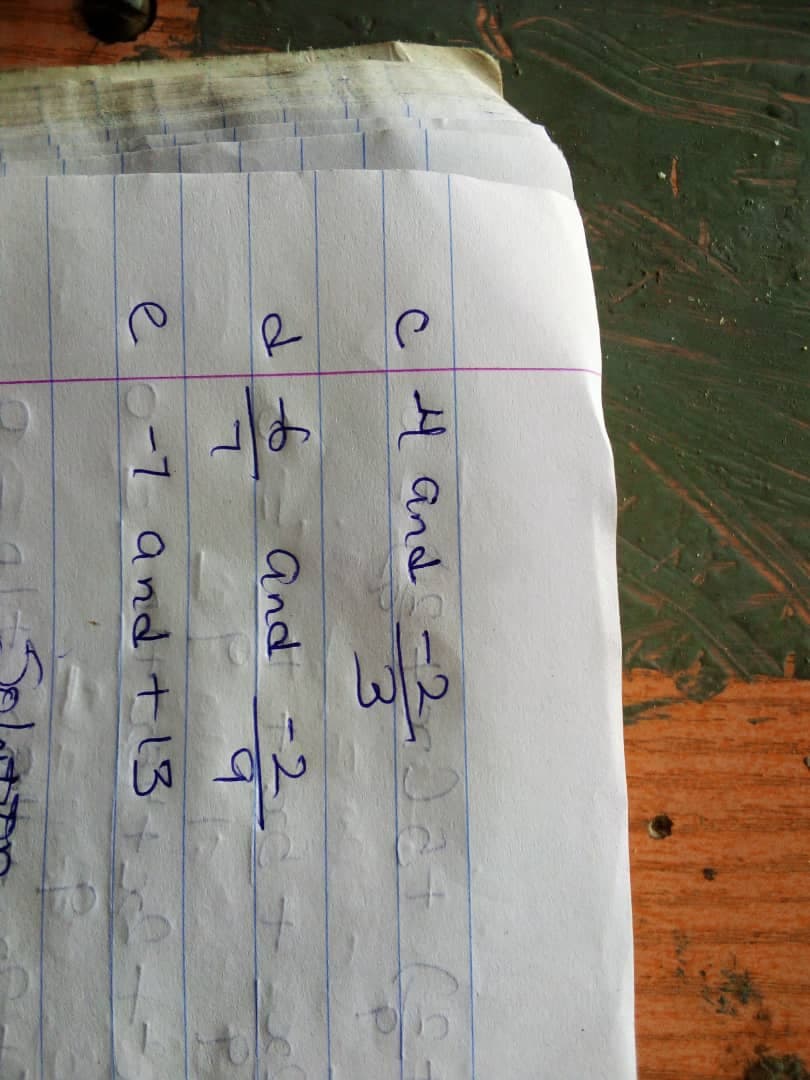 c 4 and -2/3
d -6/7 and -2/9
e -7 and +13
Solution